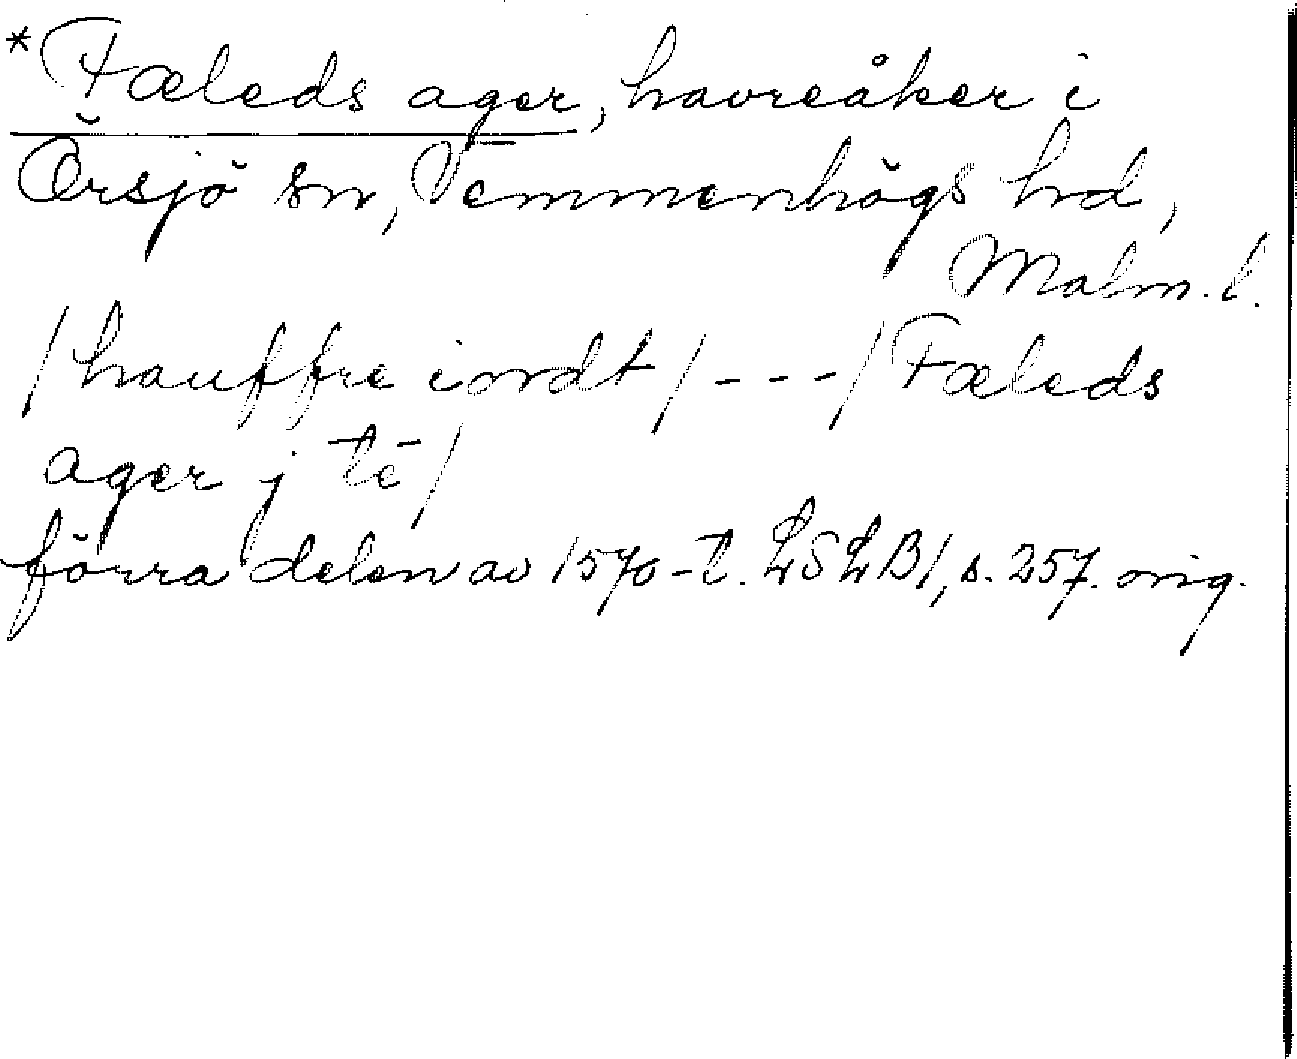 *Fæleds ager, havreåker i
Örsjö sn, Vemmenhögs hd,
Malm. l.
/hauffre iordt/---/Fæleds
ager j tē/
förra delen av 1570-t. LSLB1, s. 257. orig.